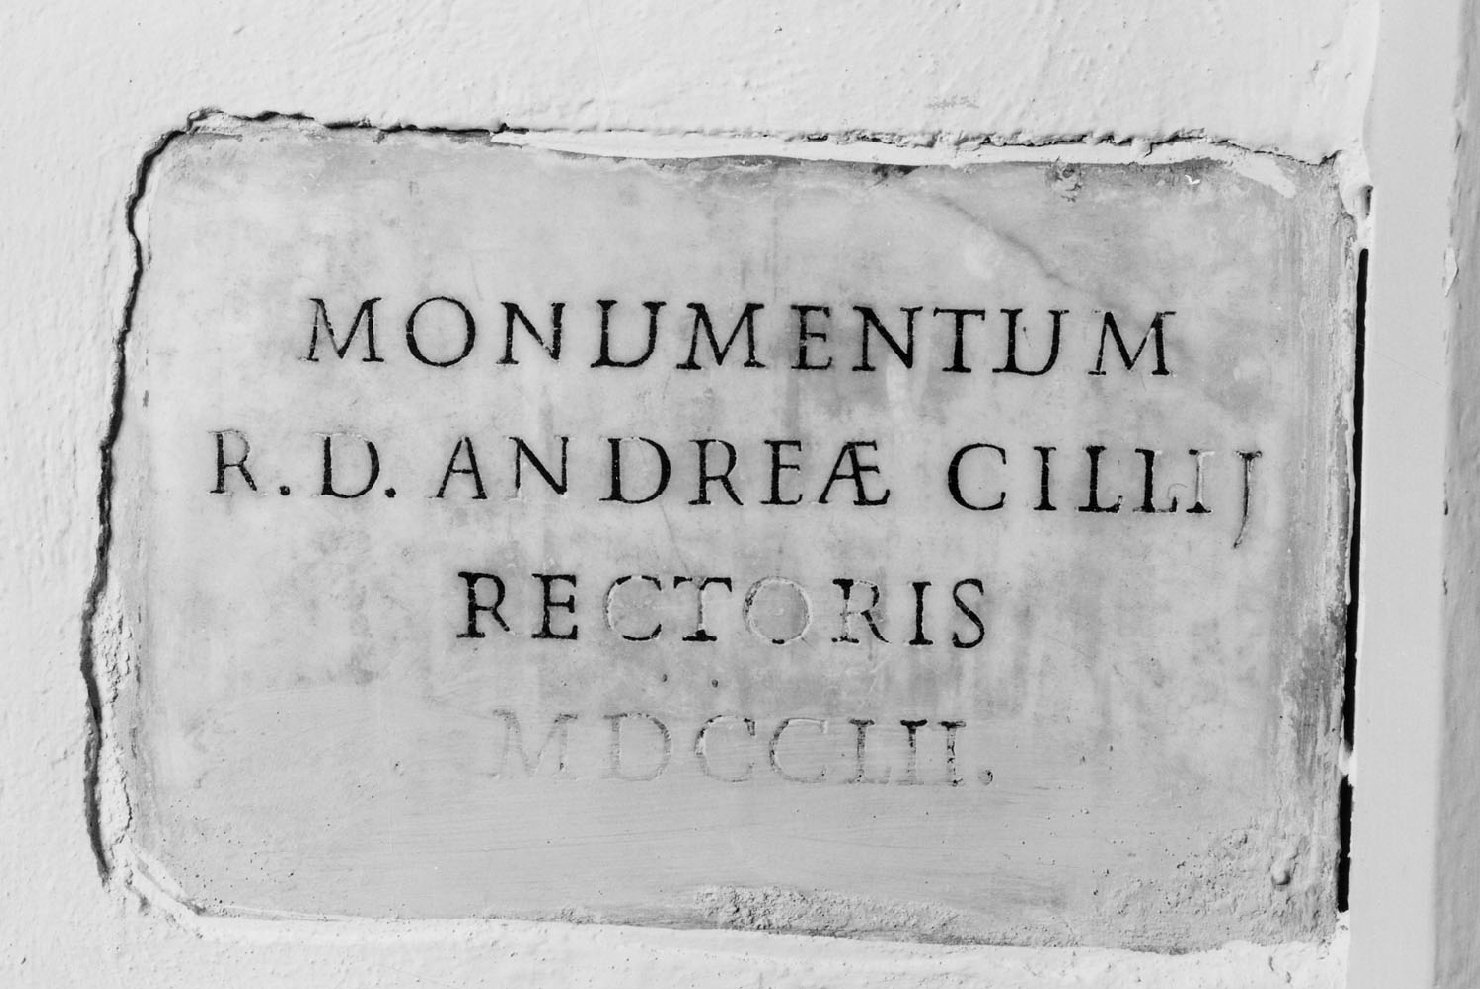 MONUMENTUM
R. D. ANDREÆ CILLIJ
RECTORIS
MDCCLII.